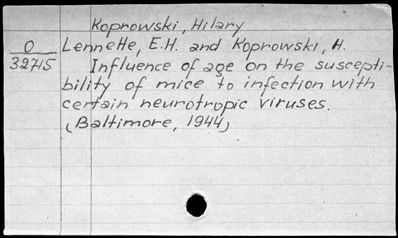 Koprowski, Hilary
O
32715
Lennette, E.H. and Koprowski, H.
Influence of age on the suscepti-
bility of mice to infection with
certain neurotropic viruses.
(Baltimore, 1944)